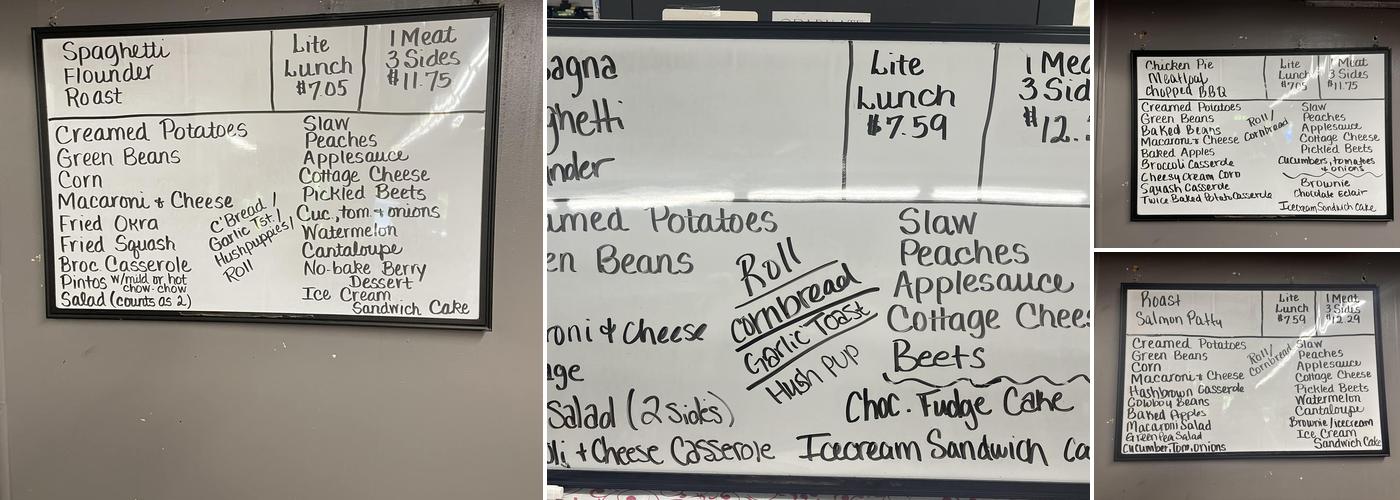 Spaghetti
Flounder
Roast
Lite
Lunch
$7.05
1 Meat
3 Sides
$11.75
Creamed Potatoes
Green Beans
Corn
Macaroni & Cheese
Fried Okra
Fried Squash
Broc Casserole
Pintos w/mild or hot
chow-chow
Salad (counts as 2)
C'Bread /
Garlic Tst. /
Hushpuppies/
Roll
Slaw
Peaches
Applesauce
Cottage Cheese
Pickled Beets
Cuc, tom & onions
Watermelon
Cantaloupe
No-bake Berry
Dessert
Ice Cream
Sandwich Cake
agna
ghetti
nder
Lite
Lunch
$7.59
1 Mea
3 Sid
$12.
amed Potatoes
en Beans
roni & Cheese
age
Salad (2 sides)
oli + Cheese Casserole
Roll
Cornbread
Garlic Toast
Hush Pup
Slaw
Peaches
Applesauce
Cottage Chee
Beets
Choc. Fudge Cake
Icecream Sandwich Ca
Chicken Pie
Meatloaf
Chopped BBQ
Lite
Lunch
$7.05
1 Meat
3 Sides
$11.75
Creamed Potatoes
Green Beans
Baked Beans
Macaroni & Cheese
Baked Apples
Broccoli Casserole
Cheesy Cream Corn
Squash Casserole
Twice Baked Potato Casserole
Roll/
Cornbread
Slaw
Peaches
Applesauce
Cottage Cheese
Pickled Beets
Cucumbers, tomatoes
& onions
Brownie
Chocolate Eclair
Icecream Sandwich Cake
Roast
Salmon Patty
Lite
Lunch
$7.59
1 Meat
3 Sides
$12.29
Creamed Potatoes
Green Beans
Corn
Macaroni & Cheese
Hashbrown Casserole
Cowboy Beans
Baked Apples
Macaroni Salad
Green Pea Salad
Cucumber, Tom, Onions
Roll/
Cornbread
Slaw
Peaches
Applesauce
Cottage Cheese
Pickled Beets
Watermelon
Cantaloupe
Brownie/icecream
Ice Cream
Sandwich Cake